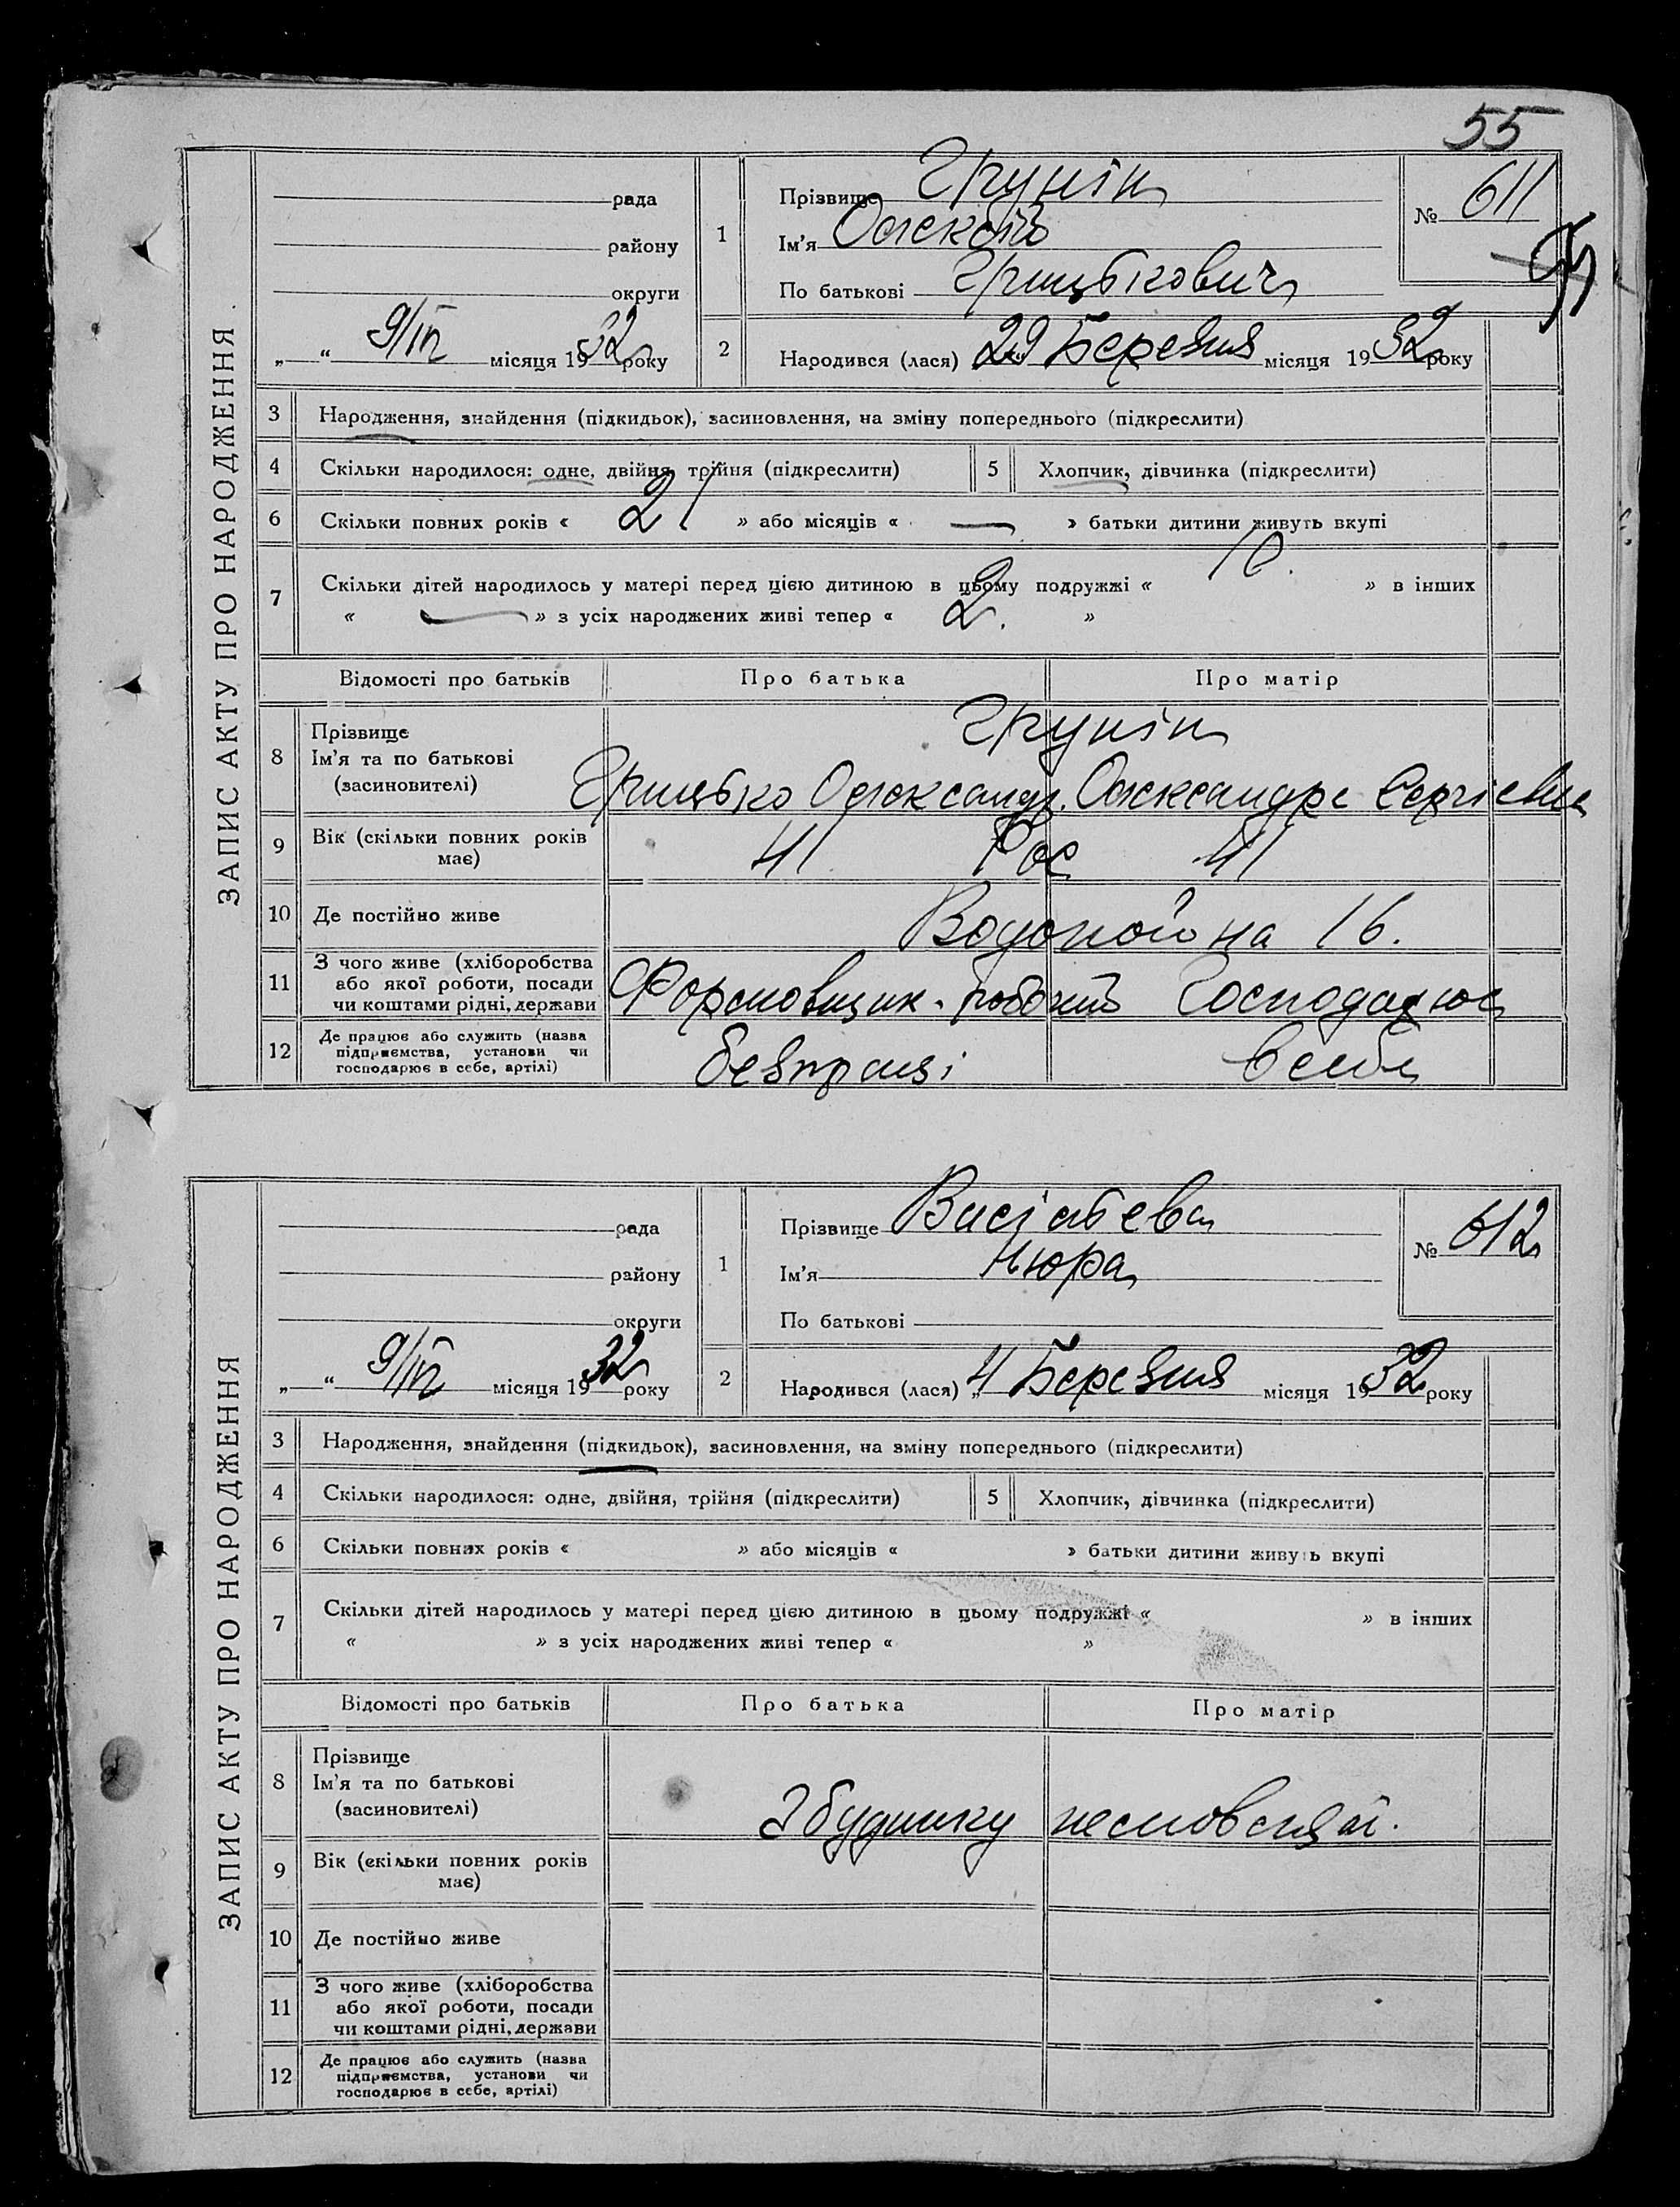 55
ЗАПИС АКТУ ПРО НАРОДЖЕННЯ
рада
району
округи
„ “ 9/IV місяця 1932 року
1 Прізвище Грунін
Ім'я Олексій
По батькові Грицькович
№ 611
2 Народився (лася) 29 Березня місяця 1932 року
3 Народження, знайдення (підкидьок), засиновлення, на зміну попереднього (підкреслити)
4 Скільки народилося: одне, двійня, трійня (підкреслити) 5 Хлопчик, дівчинка (підкреслити)
6 Скільки повних років « 21 » або місяців « — » батьки дитини живуть вкупі
7 Скільки дітей народилось у матері перед цією дитиною в цьому подружжі « 10. » в інших
« — » з усіх народжених живі тепер « 2. »
Відомості про батьків Про батька Про матір
8 Прізвище Грунін
Ім'я та по батькові
(засиновителі) Грицько Олександр. Олександра Сергієвна
9 Вік (скільки повних років має) 41 Рос 41
10 Де постійно живе Водопойна 16.
11 З чого живе (хліборобства
або якої роботи, посади
чи коштами рідні, держави Формовщик. робочий Господарює
12 Де працює або служить (назва
підприємства, установи чи
господарює в себе, артілі) безпраці в себе
ЗАПИС АКТУ ПРО НАРОДЖЕННЯ
рада
району
округи
„ “ 9/IV місяця 1932 року
1 Прізвище Васільєва
Ім'я Нюра
По батькові
№ 612
2 Народився (лася) „ 4 Березня місяця 1932 року
3 Народження, знайдення (підкидьок), засиновлення, на зміну попереднього (підкреслити)
4 Скільки народилося: одне, двійня, трійня (підкреслити) 5 Хлопчик, дівчинка (підкреслити)
6 Скільки повних років « » або місяців « » батьки дитини живуть вкупі
7 Скільки дітей народилось у матері перед цією дитиною в цьому подружжі « » в інших
« » з усіх народжених живі тепер « »
Відомості про батьків Про батька Про матір
8 Прізвище
Ім'я та по батькові
(засиновителі) З будинку немовлят.
9 Вік (скільки повних років має)
10 Де постійно живе
11 З чого живе (хліборобства
або якої роботи, посади
чи коштами рідні, держави
12 Де працює або служить (назва
підприємства, установи чи
господарює в себе, артілі)